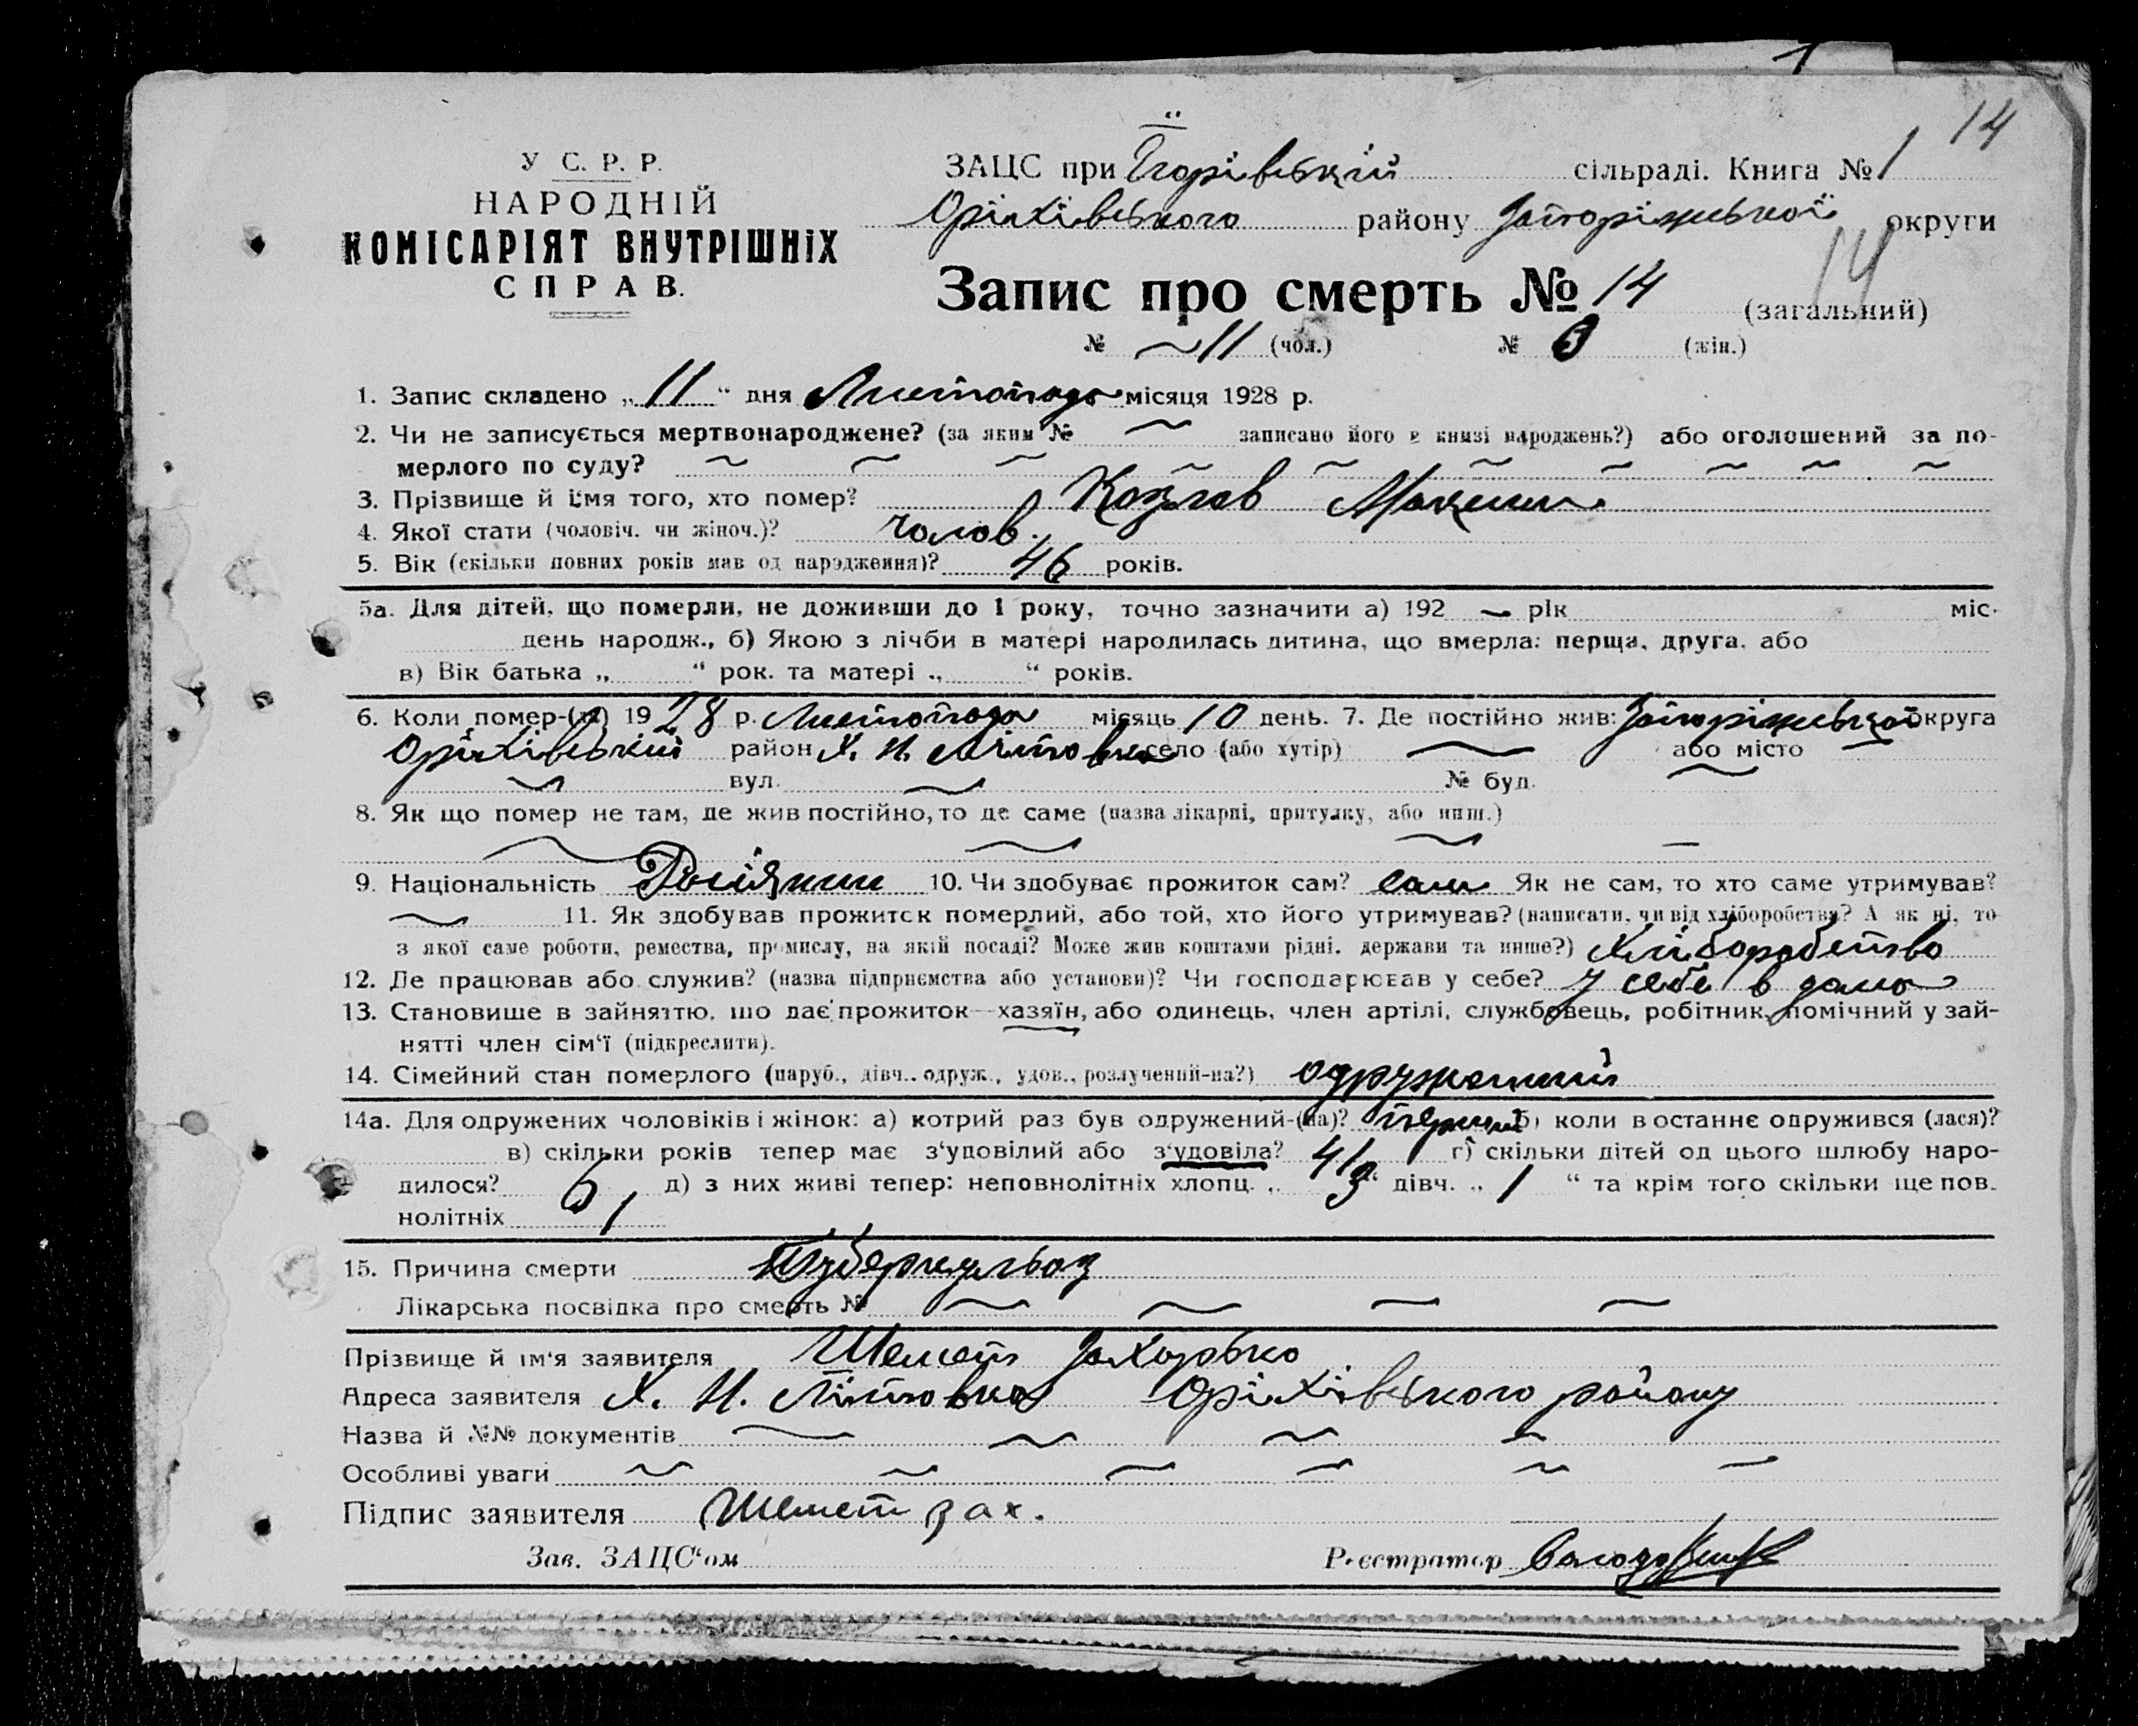 1
14
У С. Р. Р.
НАРОДНІЙ
КОМІСАРІЯТ ВНУТРІШНІХ
СПРАВ.
ЗАЦС при сільраді. Книга № 1
Оріхівського району Запоріжської округи
14
Запис про смерть № 14 (загальний)
№ 11 (чол.) № 3 (жін.)
1. Запис складено „ 11 “ дня Листопада місяця 1928 р.
2. Чи не записується мертвонароджене? (за яким № записано його в книзі народжень?) або оголошений за по-
мерлого по суду?
3. Прізвище й імя того, хто помер? Козлов Максим
4. Якої стати (чоловіч. чи жіноч.)? чолов.
5. Вік (скільки повних років мав од народження)? 46 років.
5а. Для дітей, що померли, не доживши до 1 року, точно зазначити а) 192 рік міс.
день народж., б) Якою з лічби в матері народилась дитина, що вмерла: перща, друга, або
в) Вік батька „ “ рок. та матері „ “ років.
6. Коли помер-(ла) 1928 р. Листопада місяць 10 день. 7. Де постійно жив: Запоріжська округа
Оріхівський район Х. Н. село (або хутір) або місто
вул. № буд.
8. Як що помер не там, де жив постійно, то де саме (назва лікарні, притулку, або инш.)
9. Національність Росіянин 10. Чи здобуває прожиток сам? сам Як не сам, то хто саме утримував?
11. Як здобував прожиток померлий, або той, хто його утримував? (написати, чи від хліборобства? А як ні, то
з якої саме роботи, ремества, промислу, на якій посаді? Може жив коштами рідні, держави та инше?) Хліборобство
12. Де працював або служив? (назва підприємства або установи)? Чи господарював у себе? у себе в дома
13. Становище в зайняттю, що дає прожиток—хазяїн, або одинець, член артілі, службовець, робітник, помічний у зай-
нятті член сім‘ї (підкреслити).
14. Сімейний стан померлого (паруб., дівч., одруж., удов., розлучений-на?) одружений
14а. Для одружених чоловіків і жінок: а) котрий раз був одружений-(на)? перший б) коли востаннє одружився (лася)?
в) скільки років тепер має з‘удовілий або з‘удовіла? 41 г) скільки дітей од цього шлюбу наро-
дилося? 6 д) з них живі тепер: неповнолітніх хлопц. „ 3 “ дівч. „ 1 “ та крім того скільки ще пов-
нолітніх 1
15. Причина смерти Туберкульоз
Лікарська посвідка про смерть №
Прізвище й ім‘я заявителя Шемет Захарько
Адреса заявителя Х. Н. Оріхівського району
Назва й №№ документів
Особливі уваги
Підпис заявителя Шемет Зах.
Зав. ЗАЦС‘ом Реєстратор